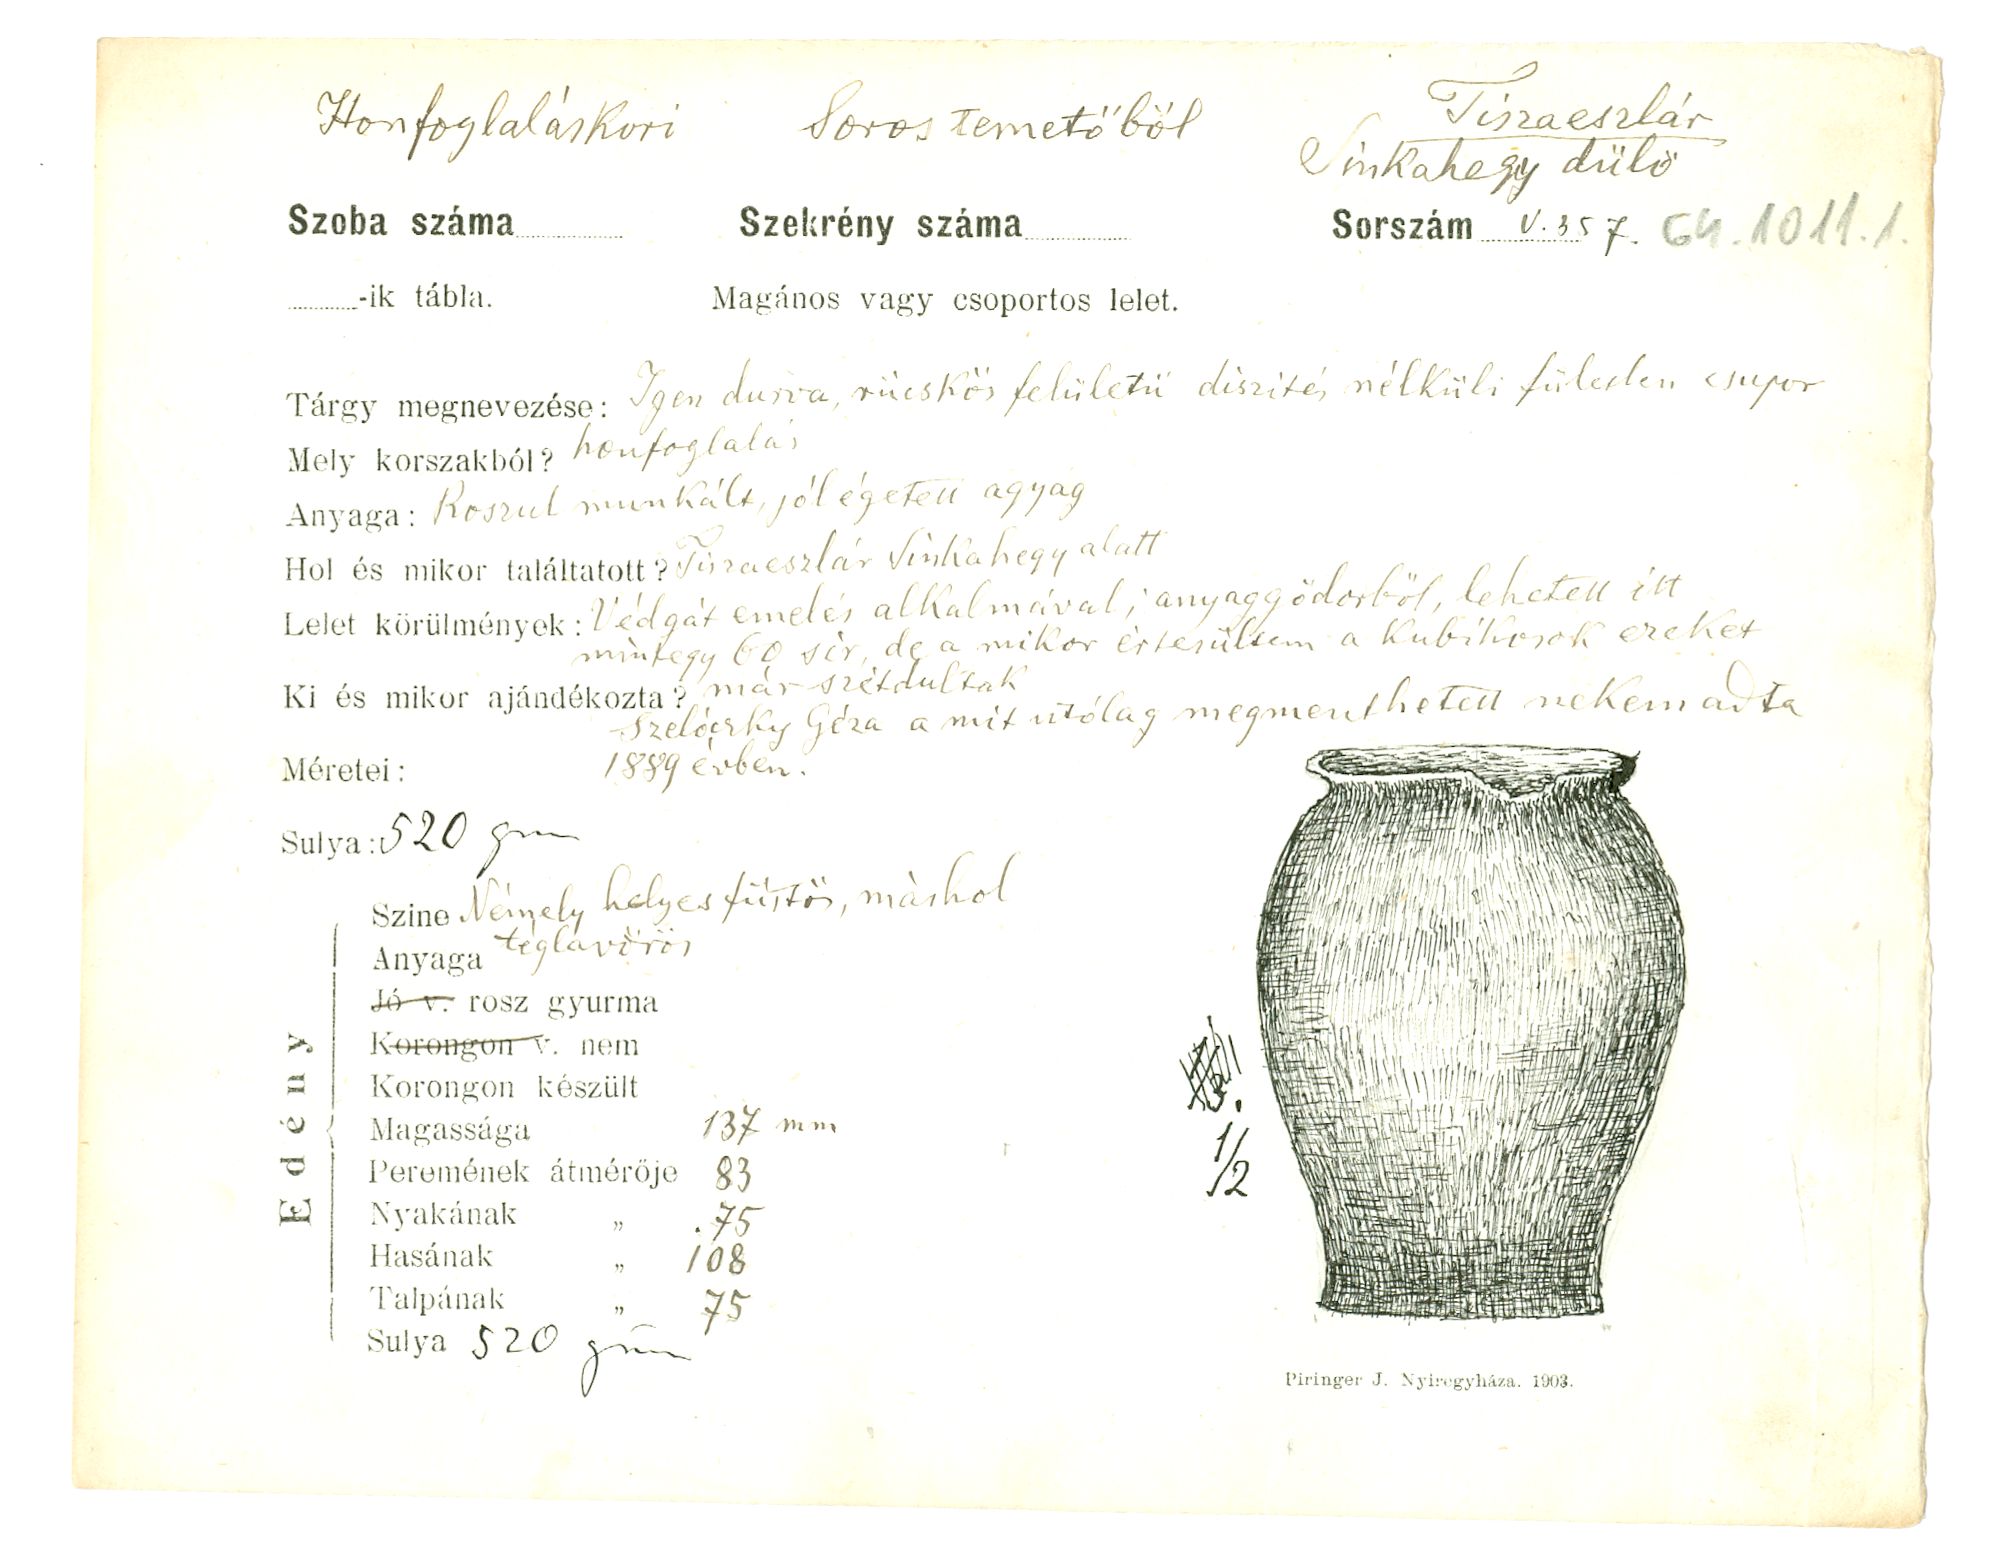 Honfoglaláskori Soros temetőből Tiszaeszlár
Sinkahegy dülö
Szoba száma Szekrény száma Sorszám V. 357. 64.1011.1.
-ik tábla. Magános vagy csoportos lelet.
Tárgy megnevezése: Igen durva, rücskös felületü diszités nélküli fületlen csupor
Mely korszakból? honfoglalás
Anyaga: Roszul munkált, jól égetett agyag
Hol és mikor találtatott? Tiszaeszlár Sinkahegy alatt
Lelet körülmények: Védgát emelés alkalmával; anyaggödörböl, lehetett itt
mintegy 60 sir, de a mikor értesültem a kubikosok ezeket
Ki és mikor ajándékozta? már szétdulták
Szelóczky Géza a mit utólag megmenthetett nekem adta
Méretei: 1889 évben.
Sulya: 520 grm
Edény
Szine Némely helyes füstös, máshol
Anyaga téglavörös
Jó v. rosz gyurma
Korongon v. nem
Korongon készült
Magassága 137 mm
Peremének átmérője 83
Nyakának „ 75
Hasának „ 108
Talpának „ 75
Sulya 520 grm
1/2
Piringer J. Nyiregyháza. 1903.